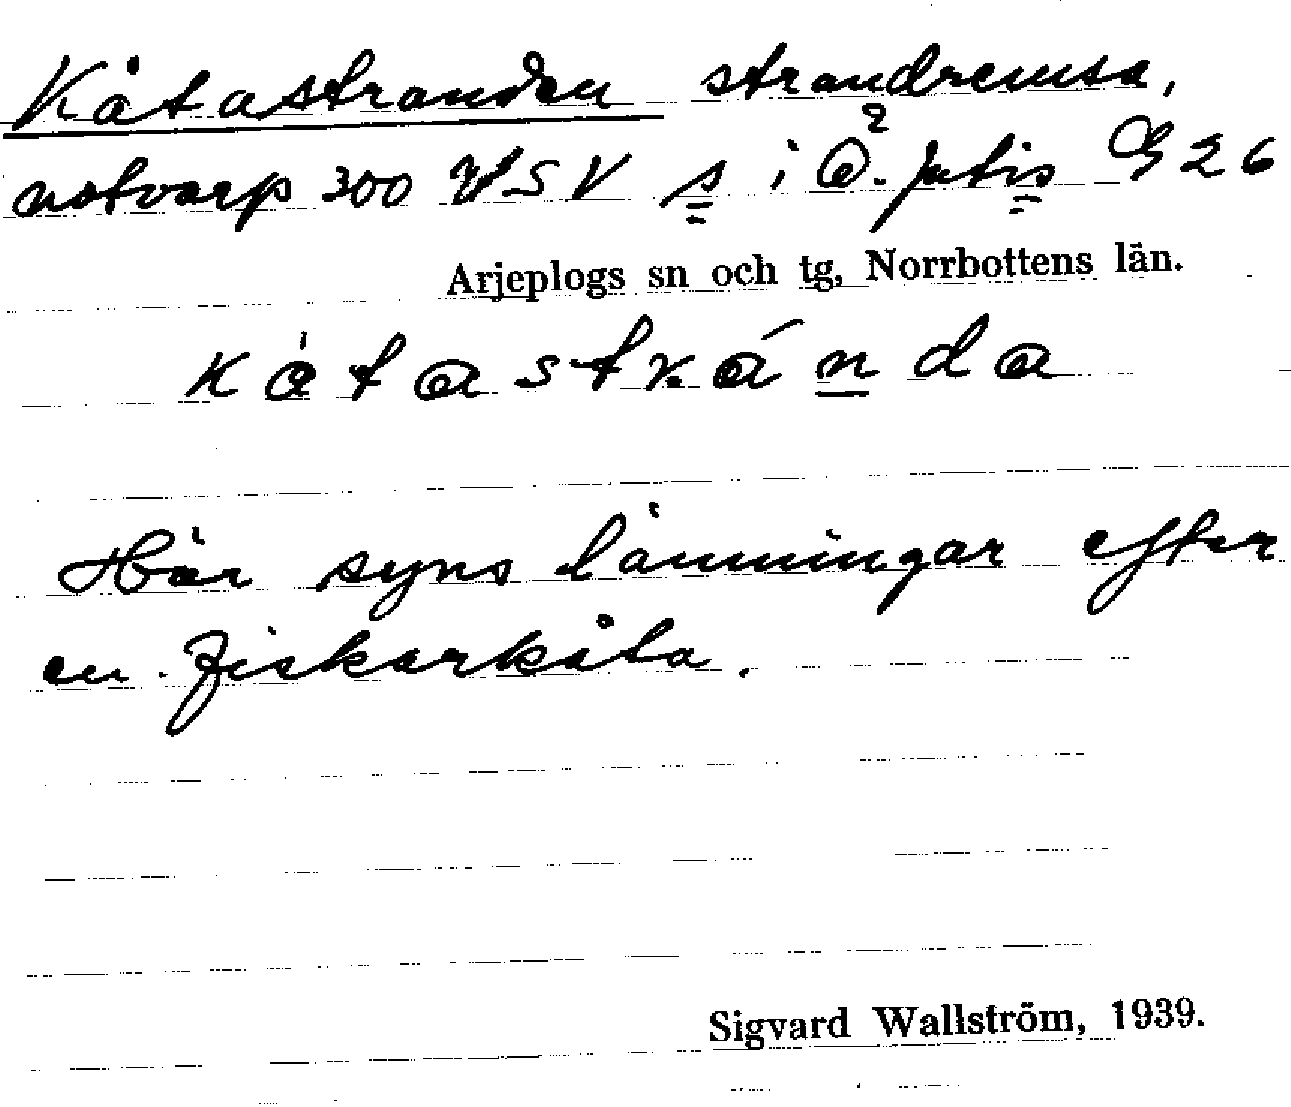 Kåtastranden strandremsa,
notvarp 300 VSV s i Ö. Jutis G 26
Arjeplogs sn och tg, Norrbottens län.
kåtastránda
Här syns lämningar efter
en fiskarkåta.
Sigvard Wallström, 1939.